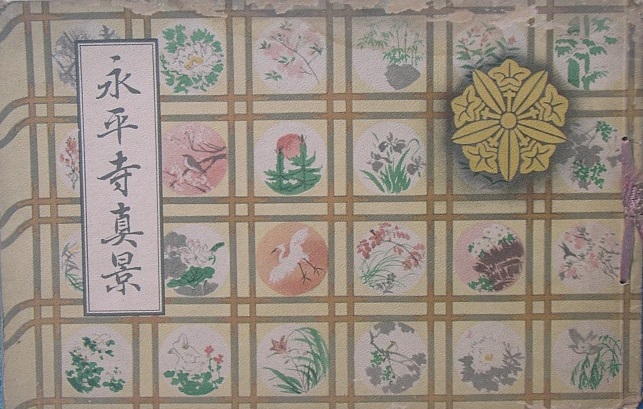 永平寺真景